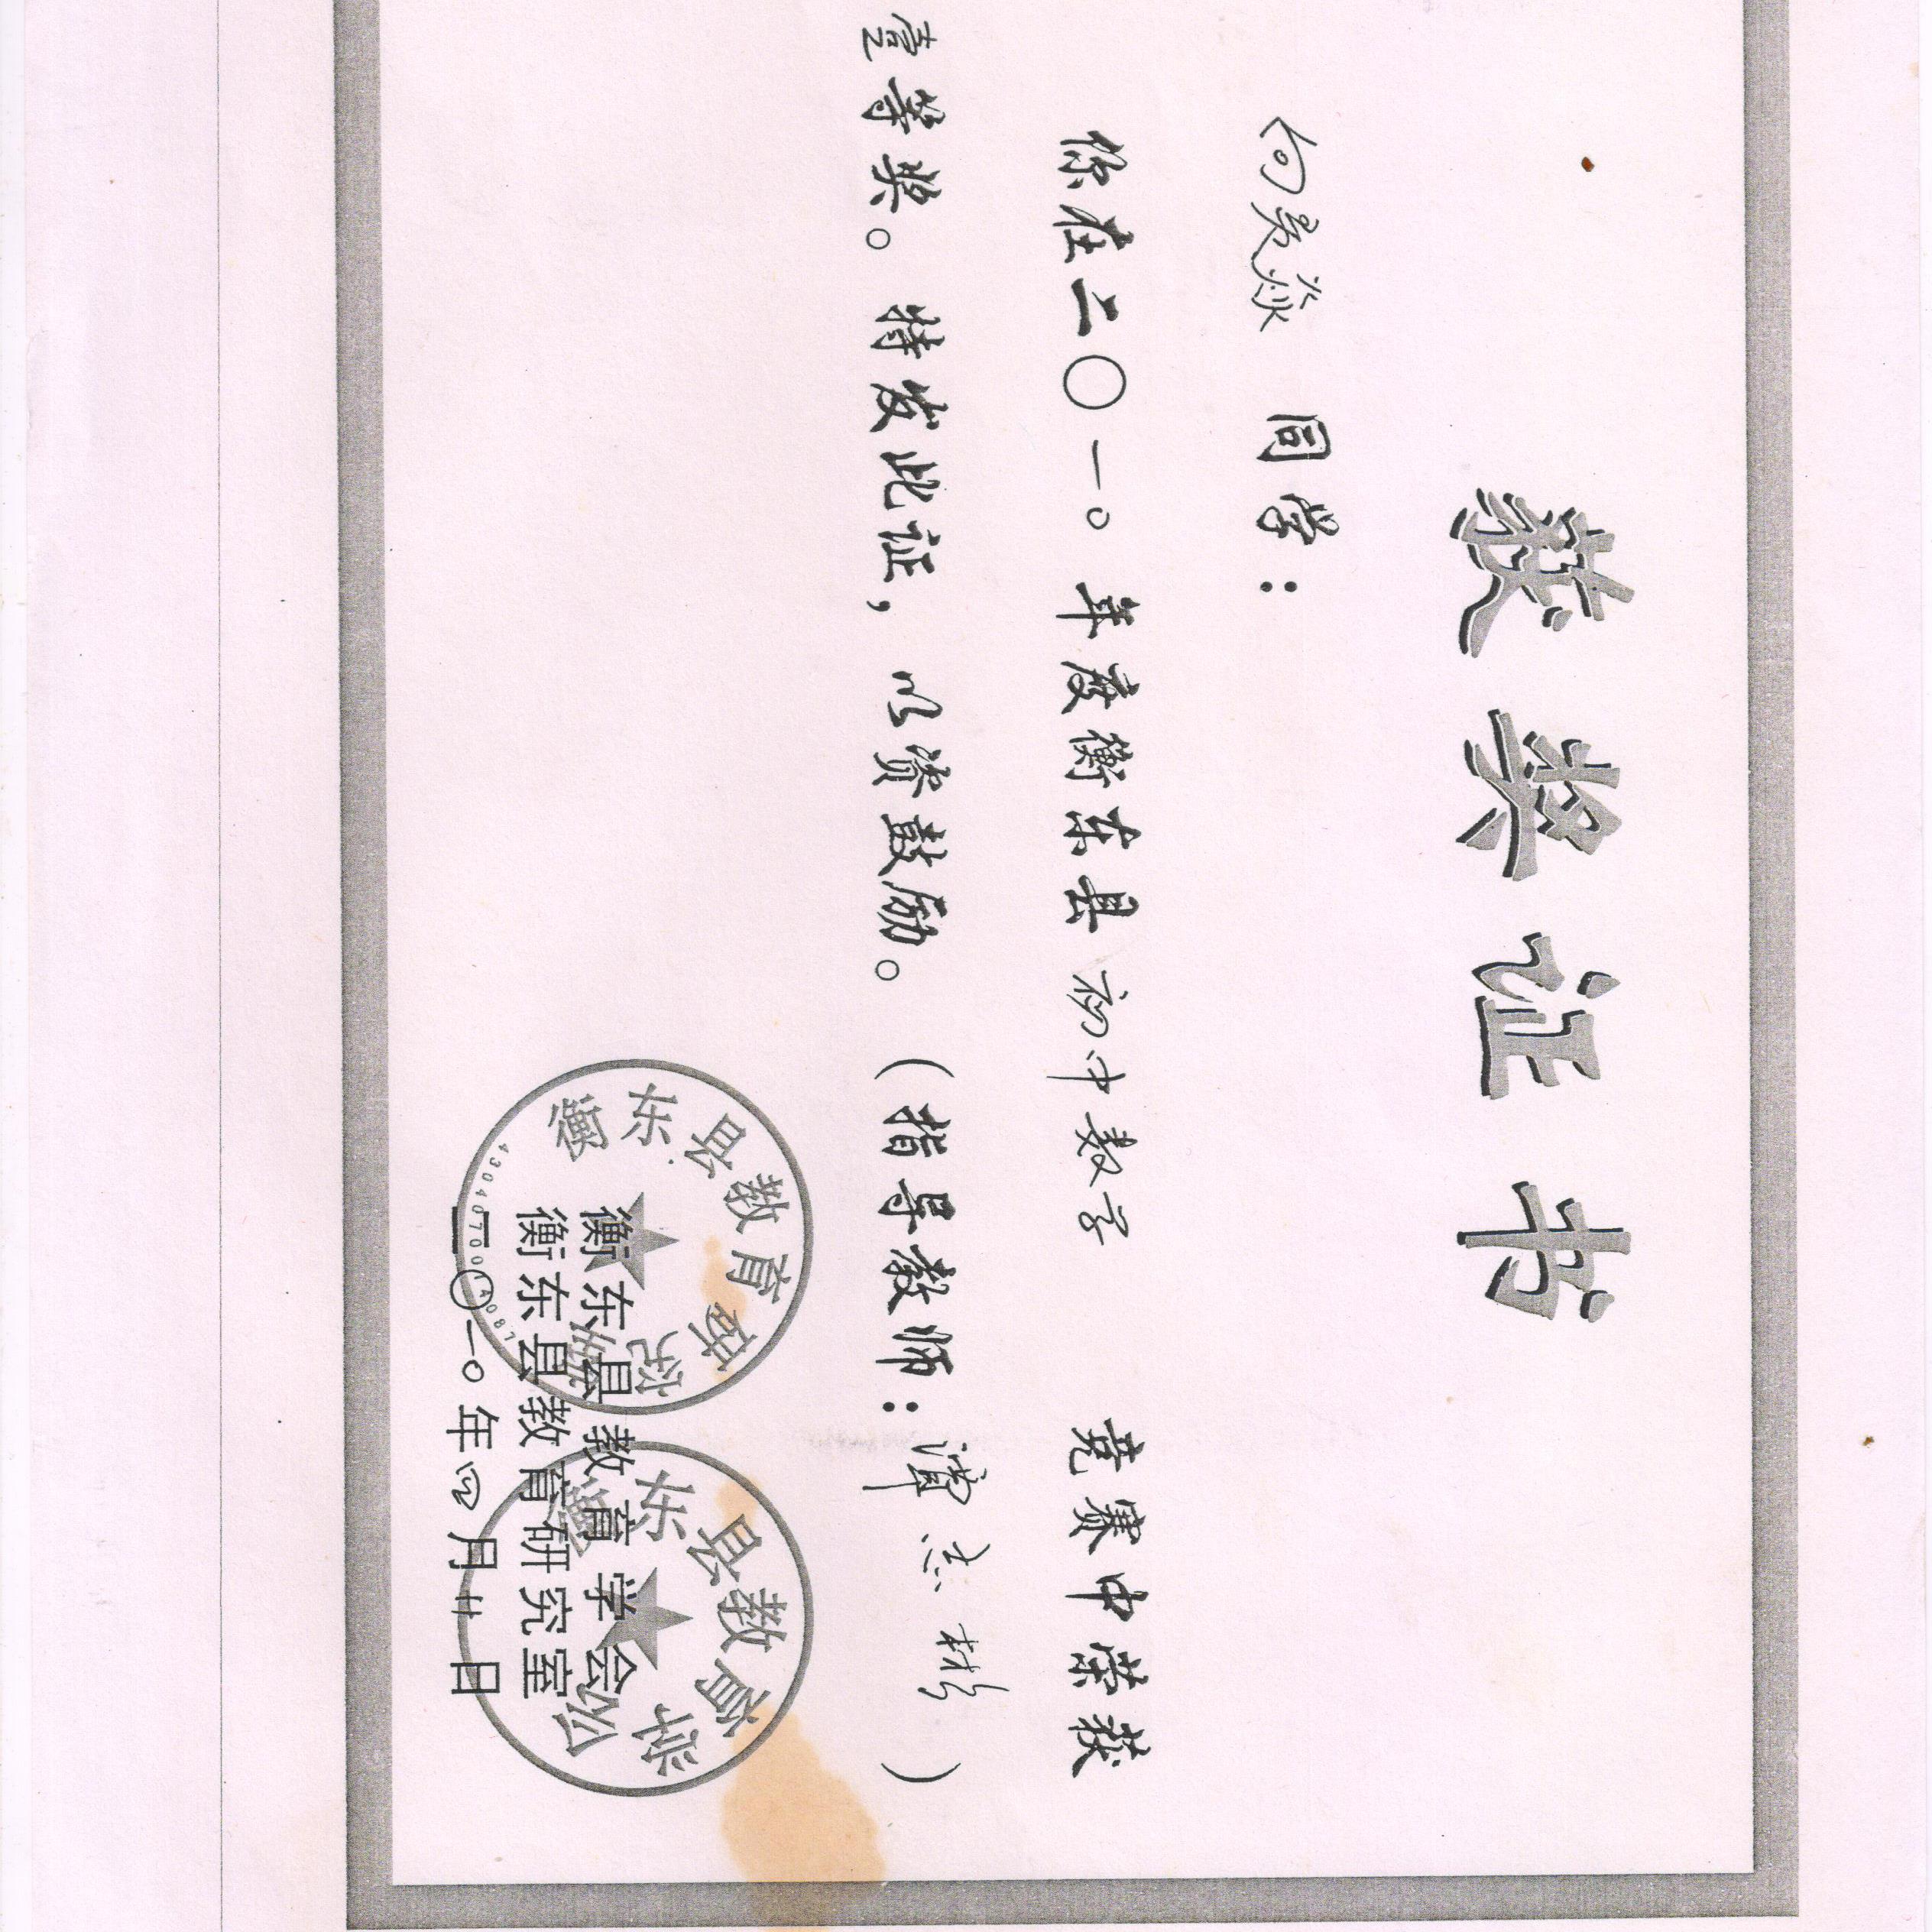 获奖证书
向昊焱 同学：
你在二〇一〇年度衡东县初中数学 竞赛中荣获
壹等奖。特发此证，以资鼓励。（指导教师：谭志彬）
衡东县教育学会
衡东县教育研究室
二〇一〇年四月廿日
衡东县教育研究室
4304007001
衡东县教育学会